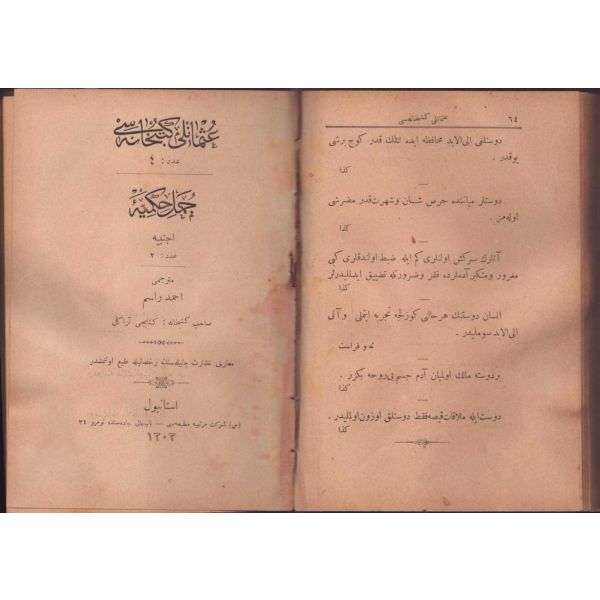 عثمانلی کتبخانه‌سی
عدد : ٤
جمل حکمیهٔ
اجنبیه
عدد : ٢
مترجمی
احمد راسم
صاحب کتبخانه : کتابجی آراکل
معارف نظارت جلیله‌سنك رخصتیله طبع اولنمشدر
استانبول
(ص) شرکت مرتبیه مطبعه‌سی — باب‌عالی جاده‌سنده نومرو ٣٤
١٣٠٣
٦٤ عثمانلی کتبخانه‌سی
دوستلغی الی الابد محافظه ایده تتلك قدر کوچ برشی
یوقدر .
کذا
دوستلر میاننده حرص شان وشهرت قدر مضرشی
اوله‌مز .
کذا
آتلرك سرکش اولنلری کم ایله ضبط اولندقلری کبی
مغرور ومتکبر آدملرده فقر وضرورتله تضییق ایدلملیدرلر
کذا
انسان دوستنك هرحالنی کوزلجه تجربه ایتملی و آنی
الی الابد سوملیدر .
ته و فراست
بردوسته مالك اولمیان آدم جسم بی‌روحه بکزر .
کذا
دوست ایله ملاقات قیصه فقط دوستلق اوزون اولملیدر .
کذا